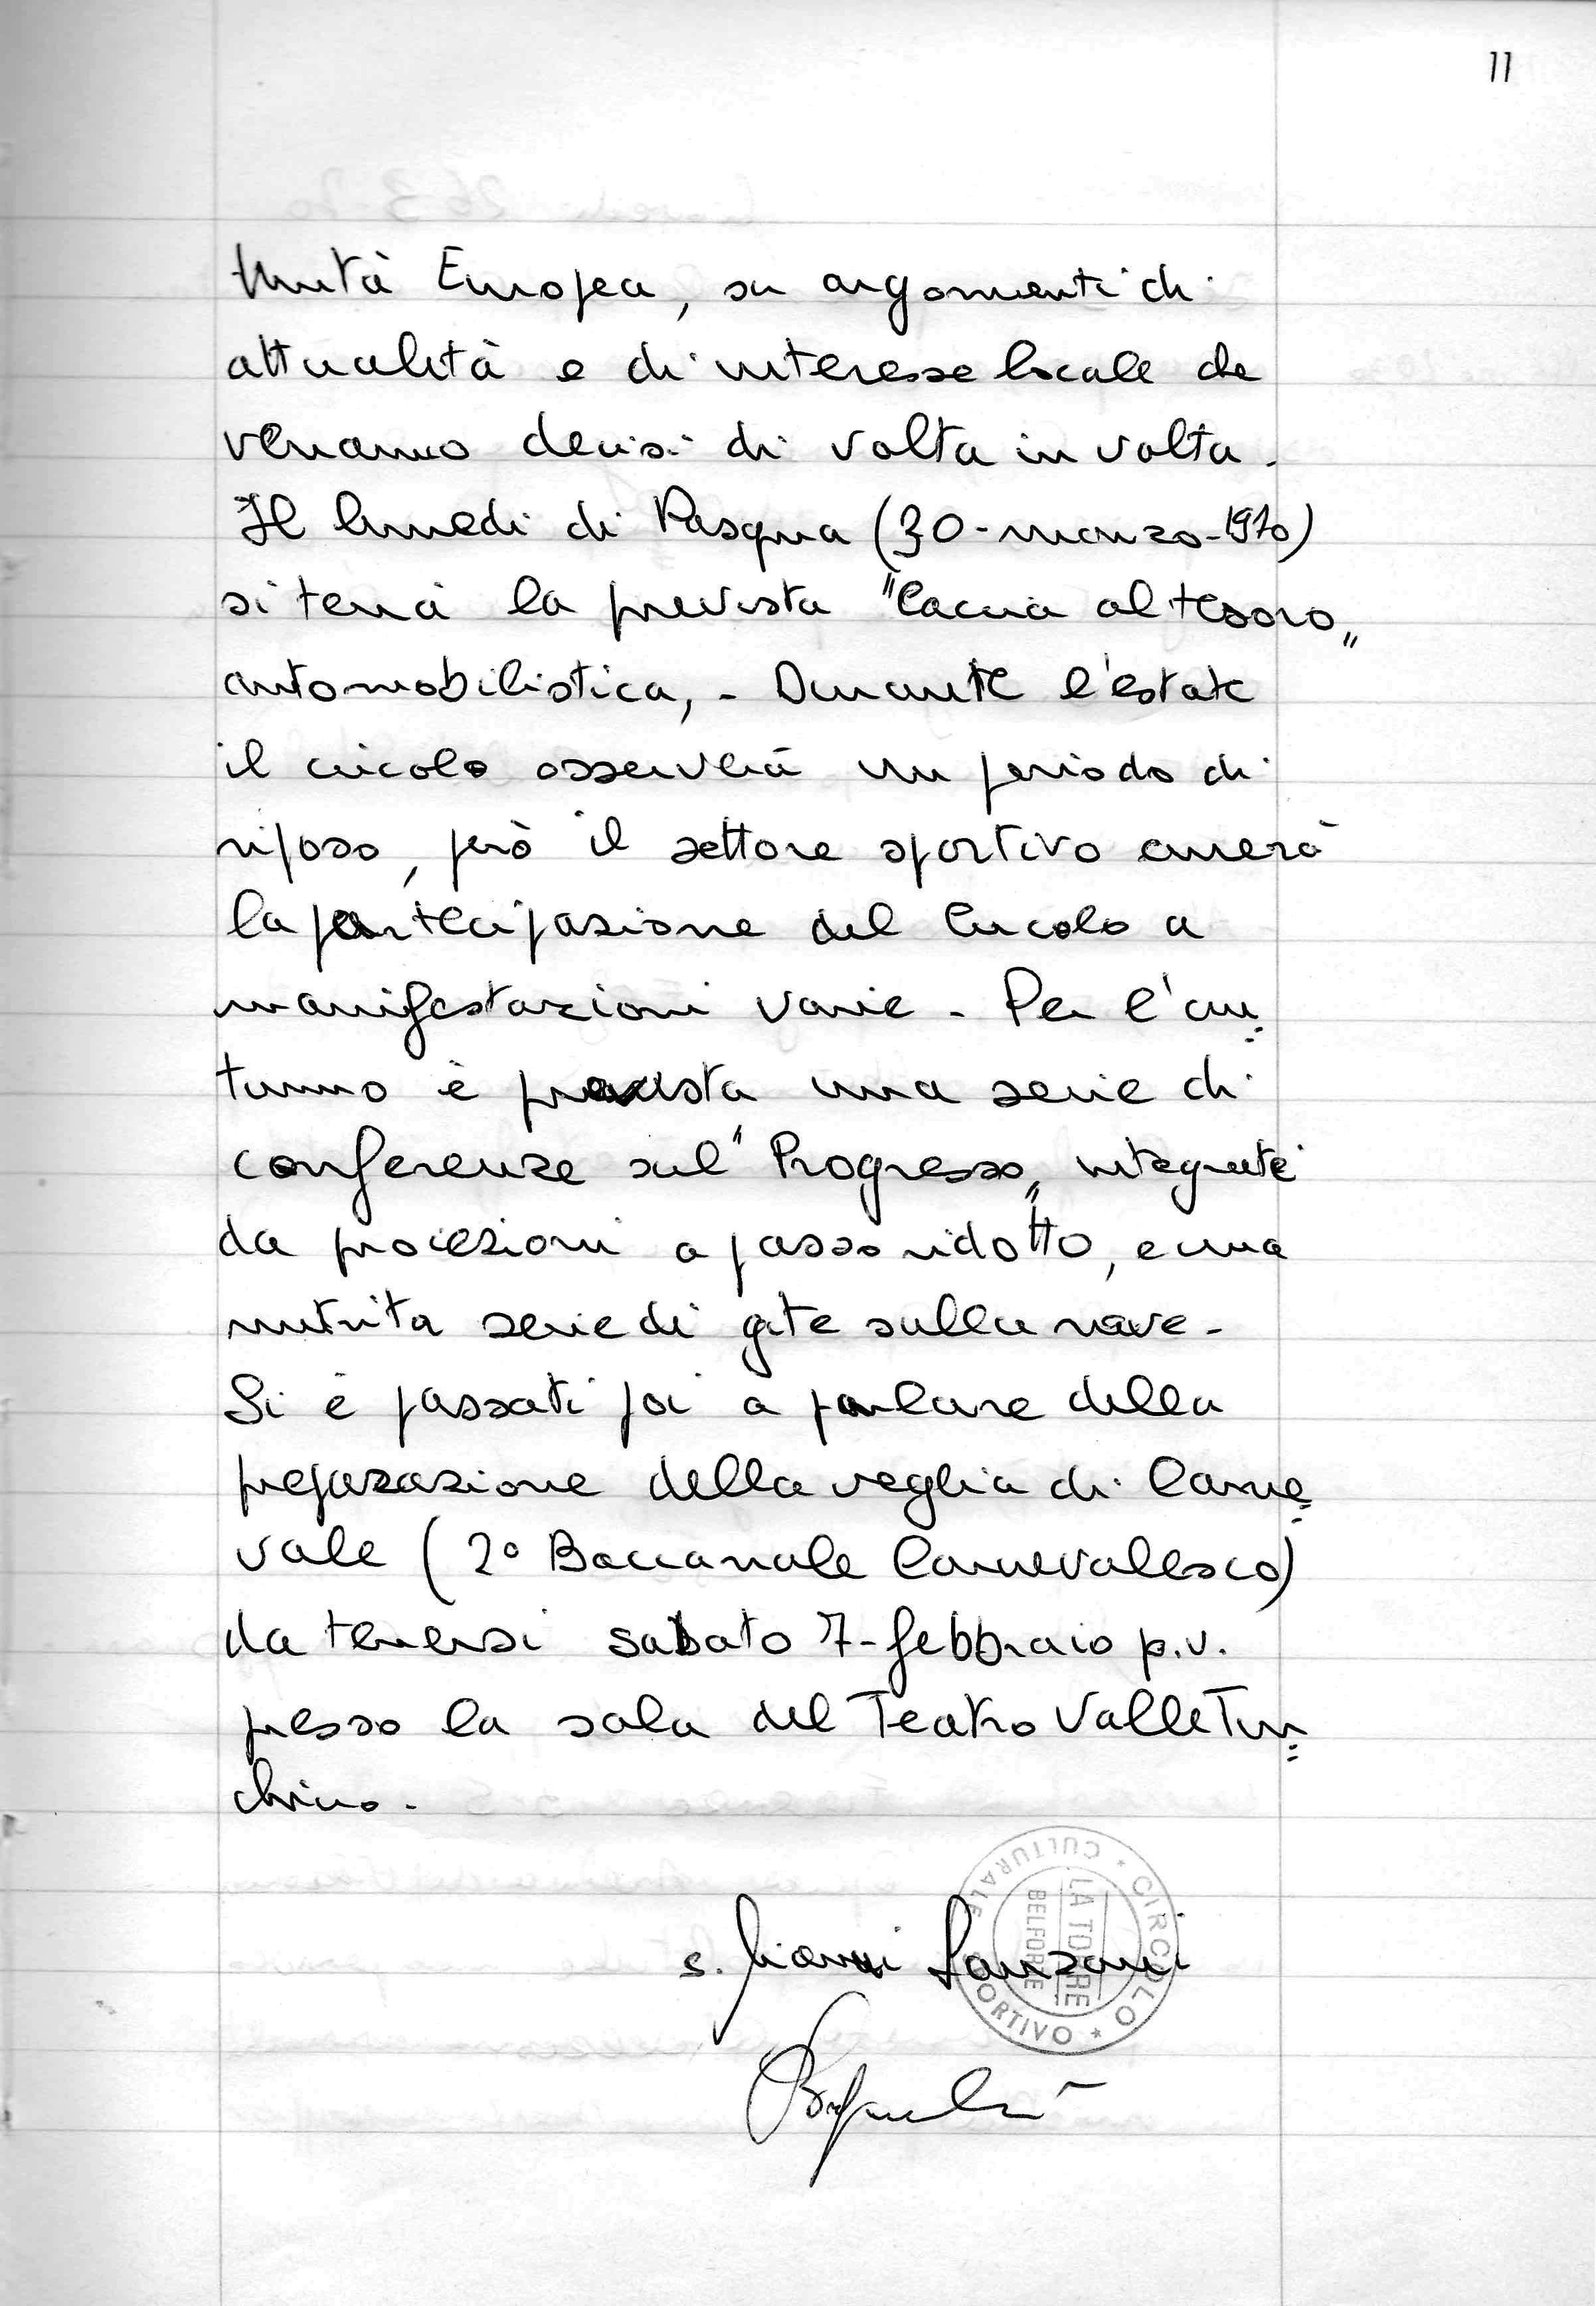 11
Unità Europea, su argomenti di
attualità e di interesse locale che
verranno decisi di volta in volta.
Il lunedì di Pasqua (30-marzo-1970)
si terrà la prevista "Caccia al tesoro„
automobilistica,. - Durante l'estate
il circolo osserverà un periodo di
riposo, però il settore sportivo curerà
la partecipazione del Circolo a
manifestazioni varie - Per l'au=
tunno è prevista una serie di
conferenze sul "Progresso„ integrate
da proiezioni a passo ridotto, e una
nutrita serie di gite sulla neve -
Si è passati poi a parlare della
preparazione della veglia di Carne=
vale (2° Baccanale Carnevalesco)
da tenersi sabato 7-febbraio p.v.
presso la sala del Teatro Valle Tur=
chino.
s. Gianni Lanzani
CIRCOLO * CULTURALE SPORTIVO *
LA TORRE
BELFORTE